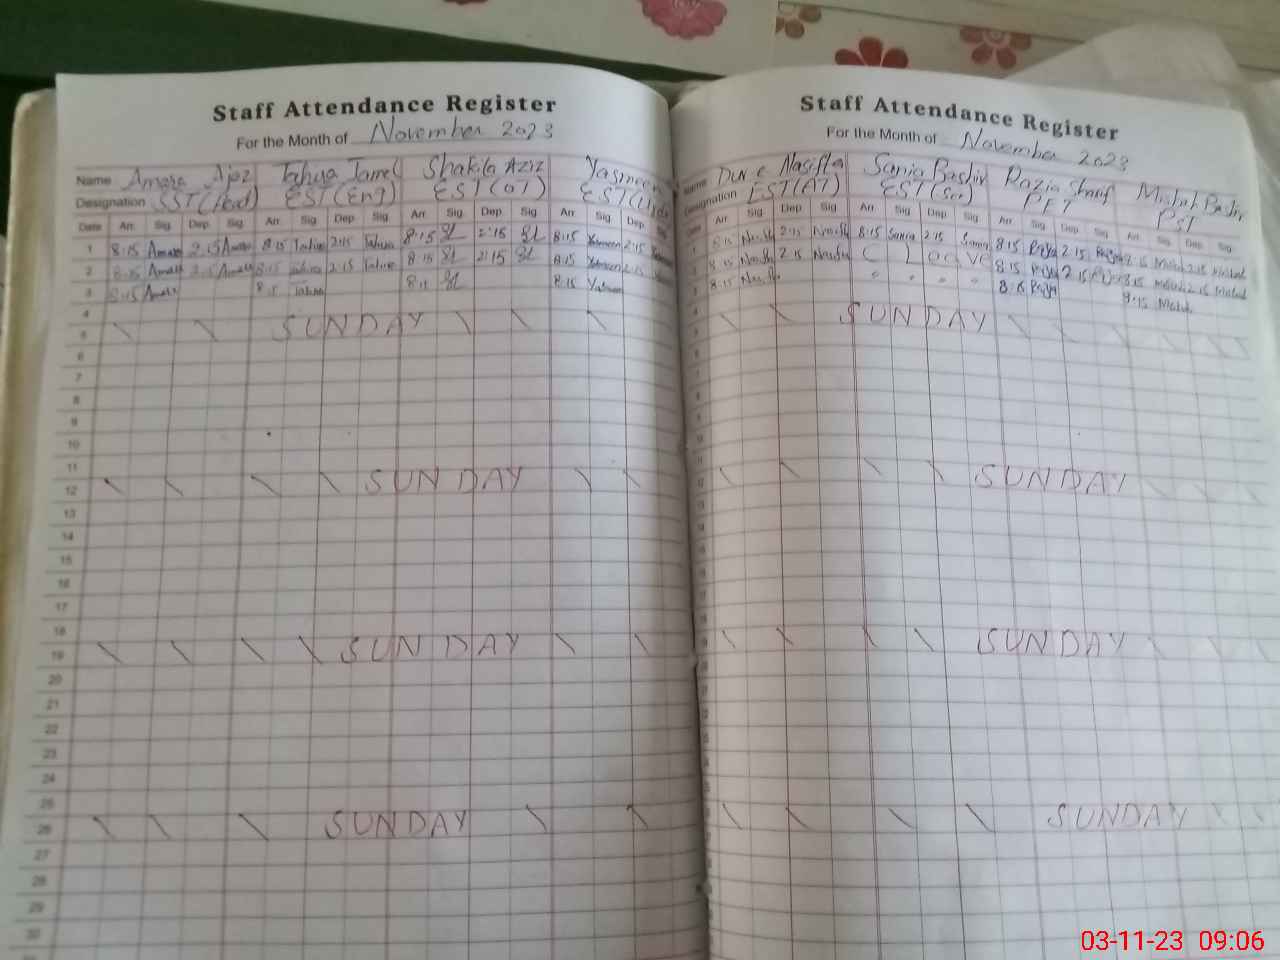 Staff Attendance Register
For the Month of November 2023
Name Amara Ajaz Tahira Jameel Shakila Aziz Yasmeen
Designation SST (Head) EST (Eng) EST (OT) EST (Urdu
Date Arr. Sig. Dep. Sig. Arr. Sig. Dep. Sig. Arr. Sig. Dep. Sig. Arr. Sig. Dep.
1 8:15 Amara 2:15 Amara 8:15 Tahira 2:15 Tahira 8:15 2:15 8:15 Yasmeen 2:15
2 8:15 Amara 2:15 Amara 8:15 Tahira 2:15 Tahira 8:15 2:15 8:15 Yasmeen 2:15
3 8:15 Amara 8:15 Tahira 8:15 Yasmeen
4
5 SUNDAY
6
7
8
9
10
11
12 SUNDAY
13
14
15
16
17
18
19 SUNDAY
20
21
22
23
24
25
26 SUNDAY
27
28
29
30
Staff Attendance Register
For the Month of November 2023
Name Sania Bashir Razia Sharif Bashir
Designation EST (AT) EST (Sci) PET PST
Arr. Sig. Dep. Sig. Arr. Sig. Dep. Sig. Arr. Sig. Dep. Sig. Arr. Sig. Dep. Sig.
8:15 2:15 8:15 Sania 2:15 Sania 8:15 Razia 2:15 Razia 8:15 2:15
8:15 2:15 C Leave 8:15 Razia 2:15 Razia 8:15 2:15
8:15 " " " " 8:15 Razia 8:15
SUNDAY
SUNDAY
SUNDAY
SUNDAY
03-11-23 09:06